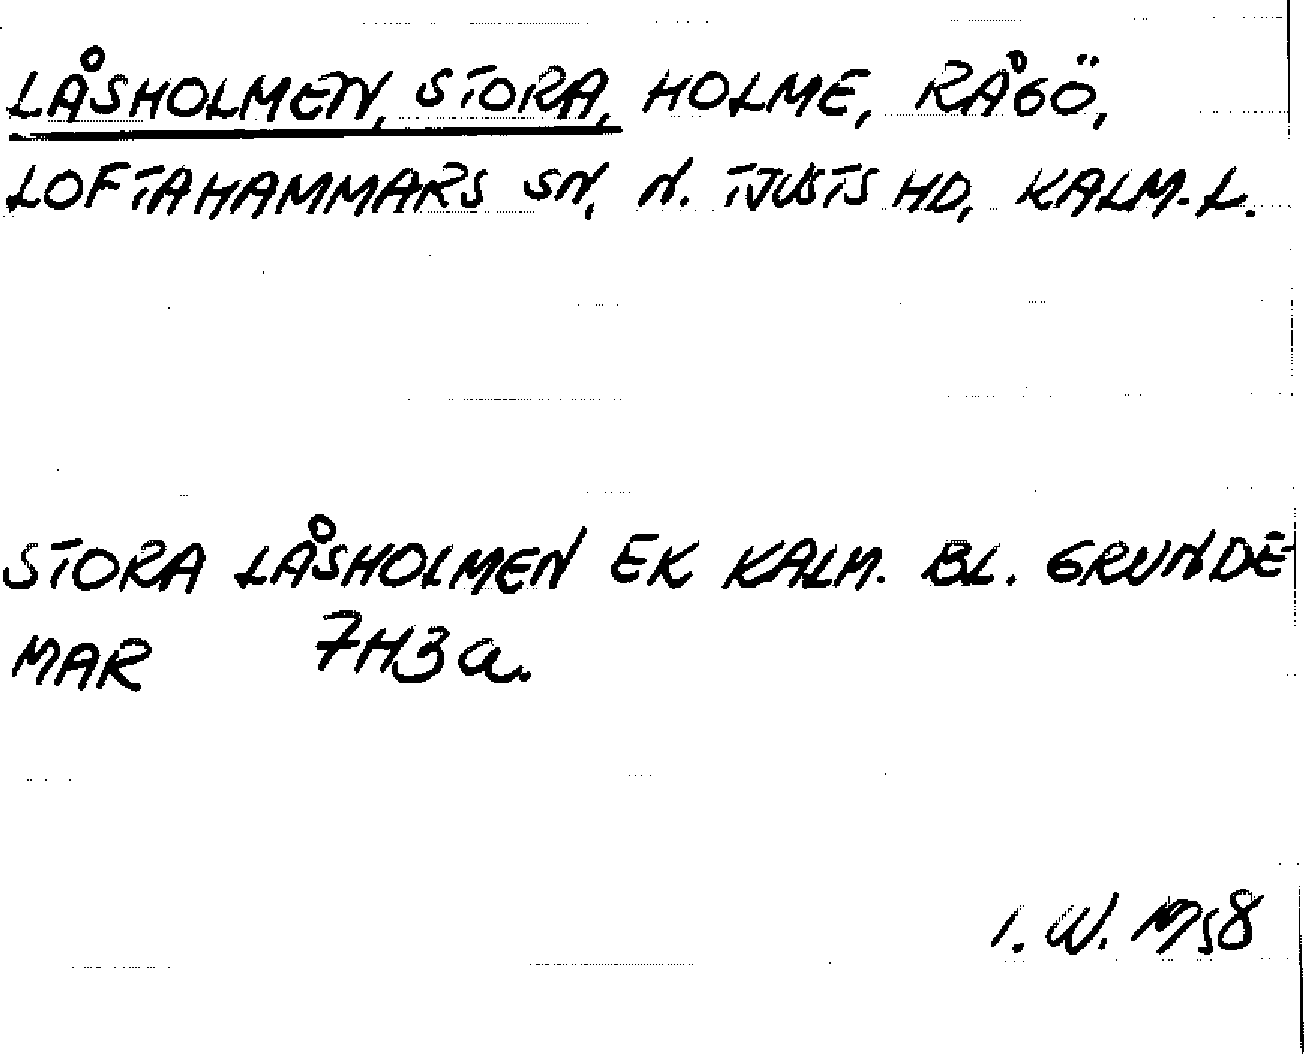 LÅSHOLMEN, STORA, HOLME, RÅGÖ,
LOFTAHAMMARS SN, N. TJUSTS HD, KALM. L.
STORA LÅSHOLMEN EK KALM. BL. GRUNDE
MAR 7H3a.
I. W. 1958